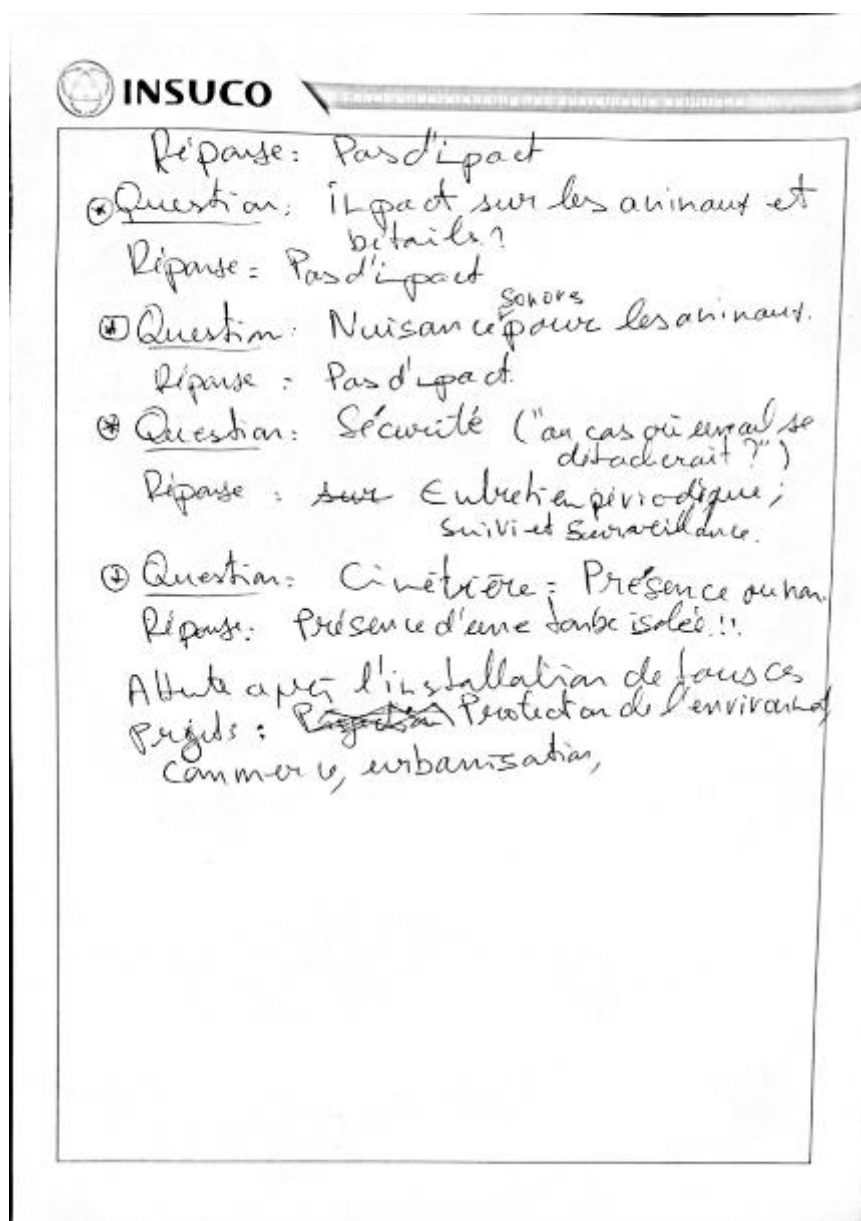 INSUCO
Réponse: Pas d'impact
Question: Impact sur les animaux et
bétails?
Réponse = Pas d'impact
Question: Nuisance sonore pour les animaux.
Réponse = Pas d'impact.
Question: Sécurité ("au cas où se
détacherait ?")
Réponse : sur Entretien périodique,
suivi et surveillance.
Question: Cimétière = Présence ou non.
Réponse: Présence d'une tombe isolée!!
Attente après l'installation de tous ces
projets: Protection de l'environnement,
commerce, urbanisation,